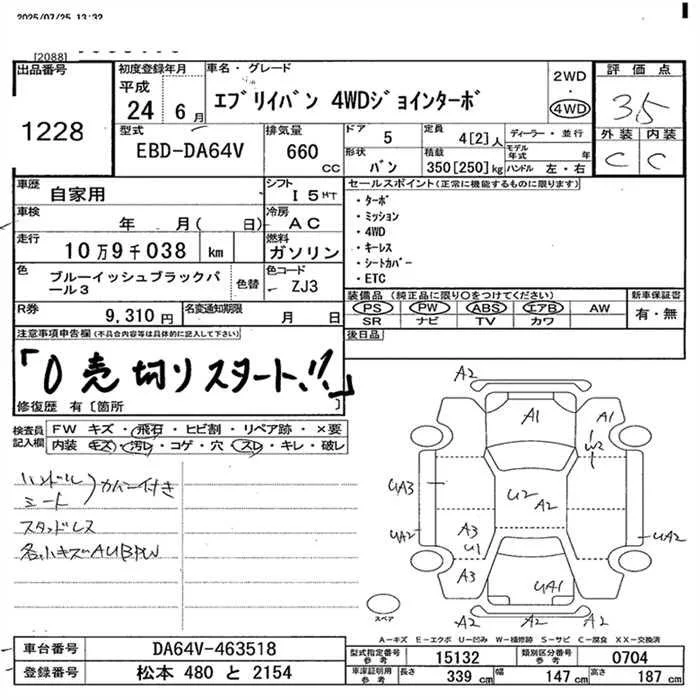 2025/07/25 13:32
[2088]
出品番号
1228
初度登録年月
平成
24 6月
車名・グレード
エブリイバン 4WDジョインターボ
2WD
・
4WD
評価点
3.5
外装 内装
C C
型式
EBD-DA64V
排気量
660
CC
ドア
5
形状
バン
定員
4[2]人
積載
350[250]kg
ディーラー・並行
モデル年式 年
ハンドル 左・右
車歴
自家用
シフト
I 5MT
車検
年 月( 日)
冷房
AC
走行
10万9千038 km
燃料
ガソリン
色
ブルーイッシュブラックパール3
色替
色コード
ZJ3
R券
9,310円
名変通知期限
月 日
セールスポイント(正常に機能するものに限ります)
・ターボ
・ミッション
・4WD
・キーレス
・シートカバー
・ETC
装備品 (純正品に限り○をつけてください)
PS PW ABS エアB AW
SR ナビ TV カワ
新車保証書
有・無
後日品
注意事項申告欄(不具合内容等は具体的に記入して下さい)
「0売切りスタート!!」
修復歴 有〔箇所 〕
検査員記入欄
FW キズ・飛石・ヒビ割・リペア跡・×要
内装 キズ・汚レ・コゲ・穴・スレ・キレ・破レ
ハンドル
シート
カバー付き
スタッドレス
各小キズAUBPW
A2
A1
A1
W2
UA3
U2
A2
UA2
A3
U1
UA2
A3
UA1
A2 A2 A2
スペア
A-キズ E-エクボ U-凹み W-補修跡 S-サビ C-腐食 XX-交換済
車台番号
DA64V-463518
登録番号
松本 480 と 2154
型式指定番号
参考
15132
類別区分番号
参考
0704
車庫証明用
参考
長さ 339 cm
幅 147 cm
高さ 187 cm